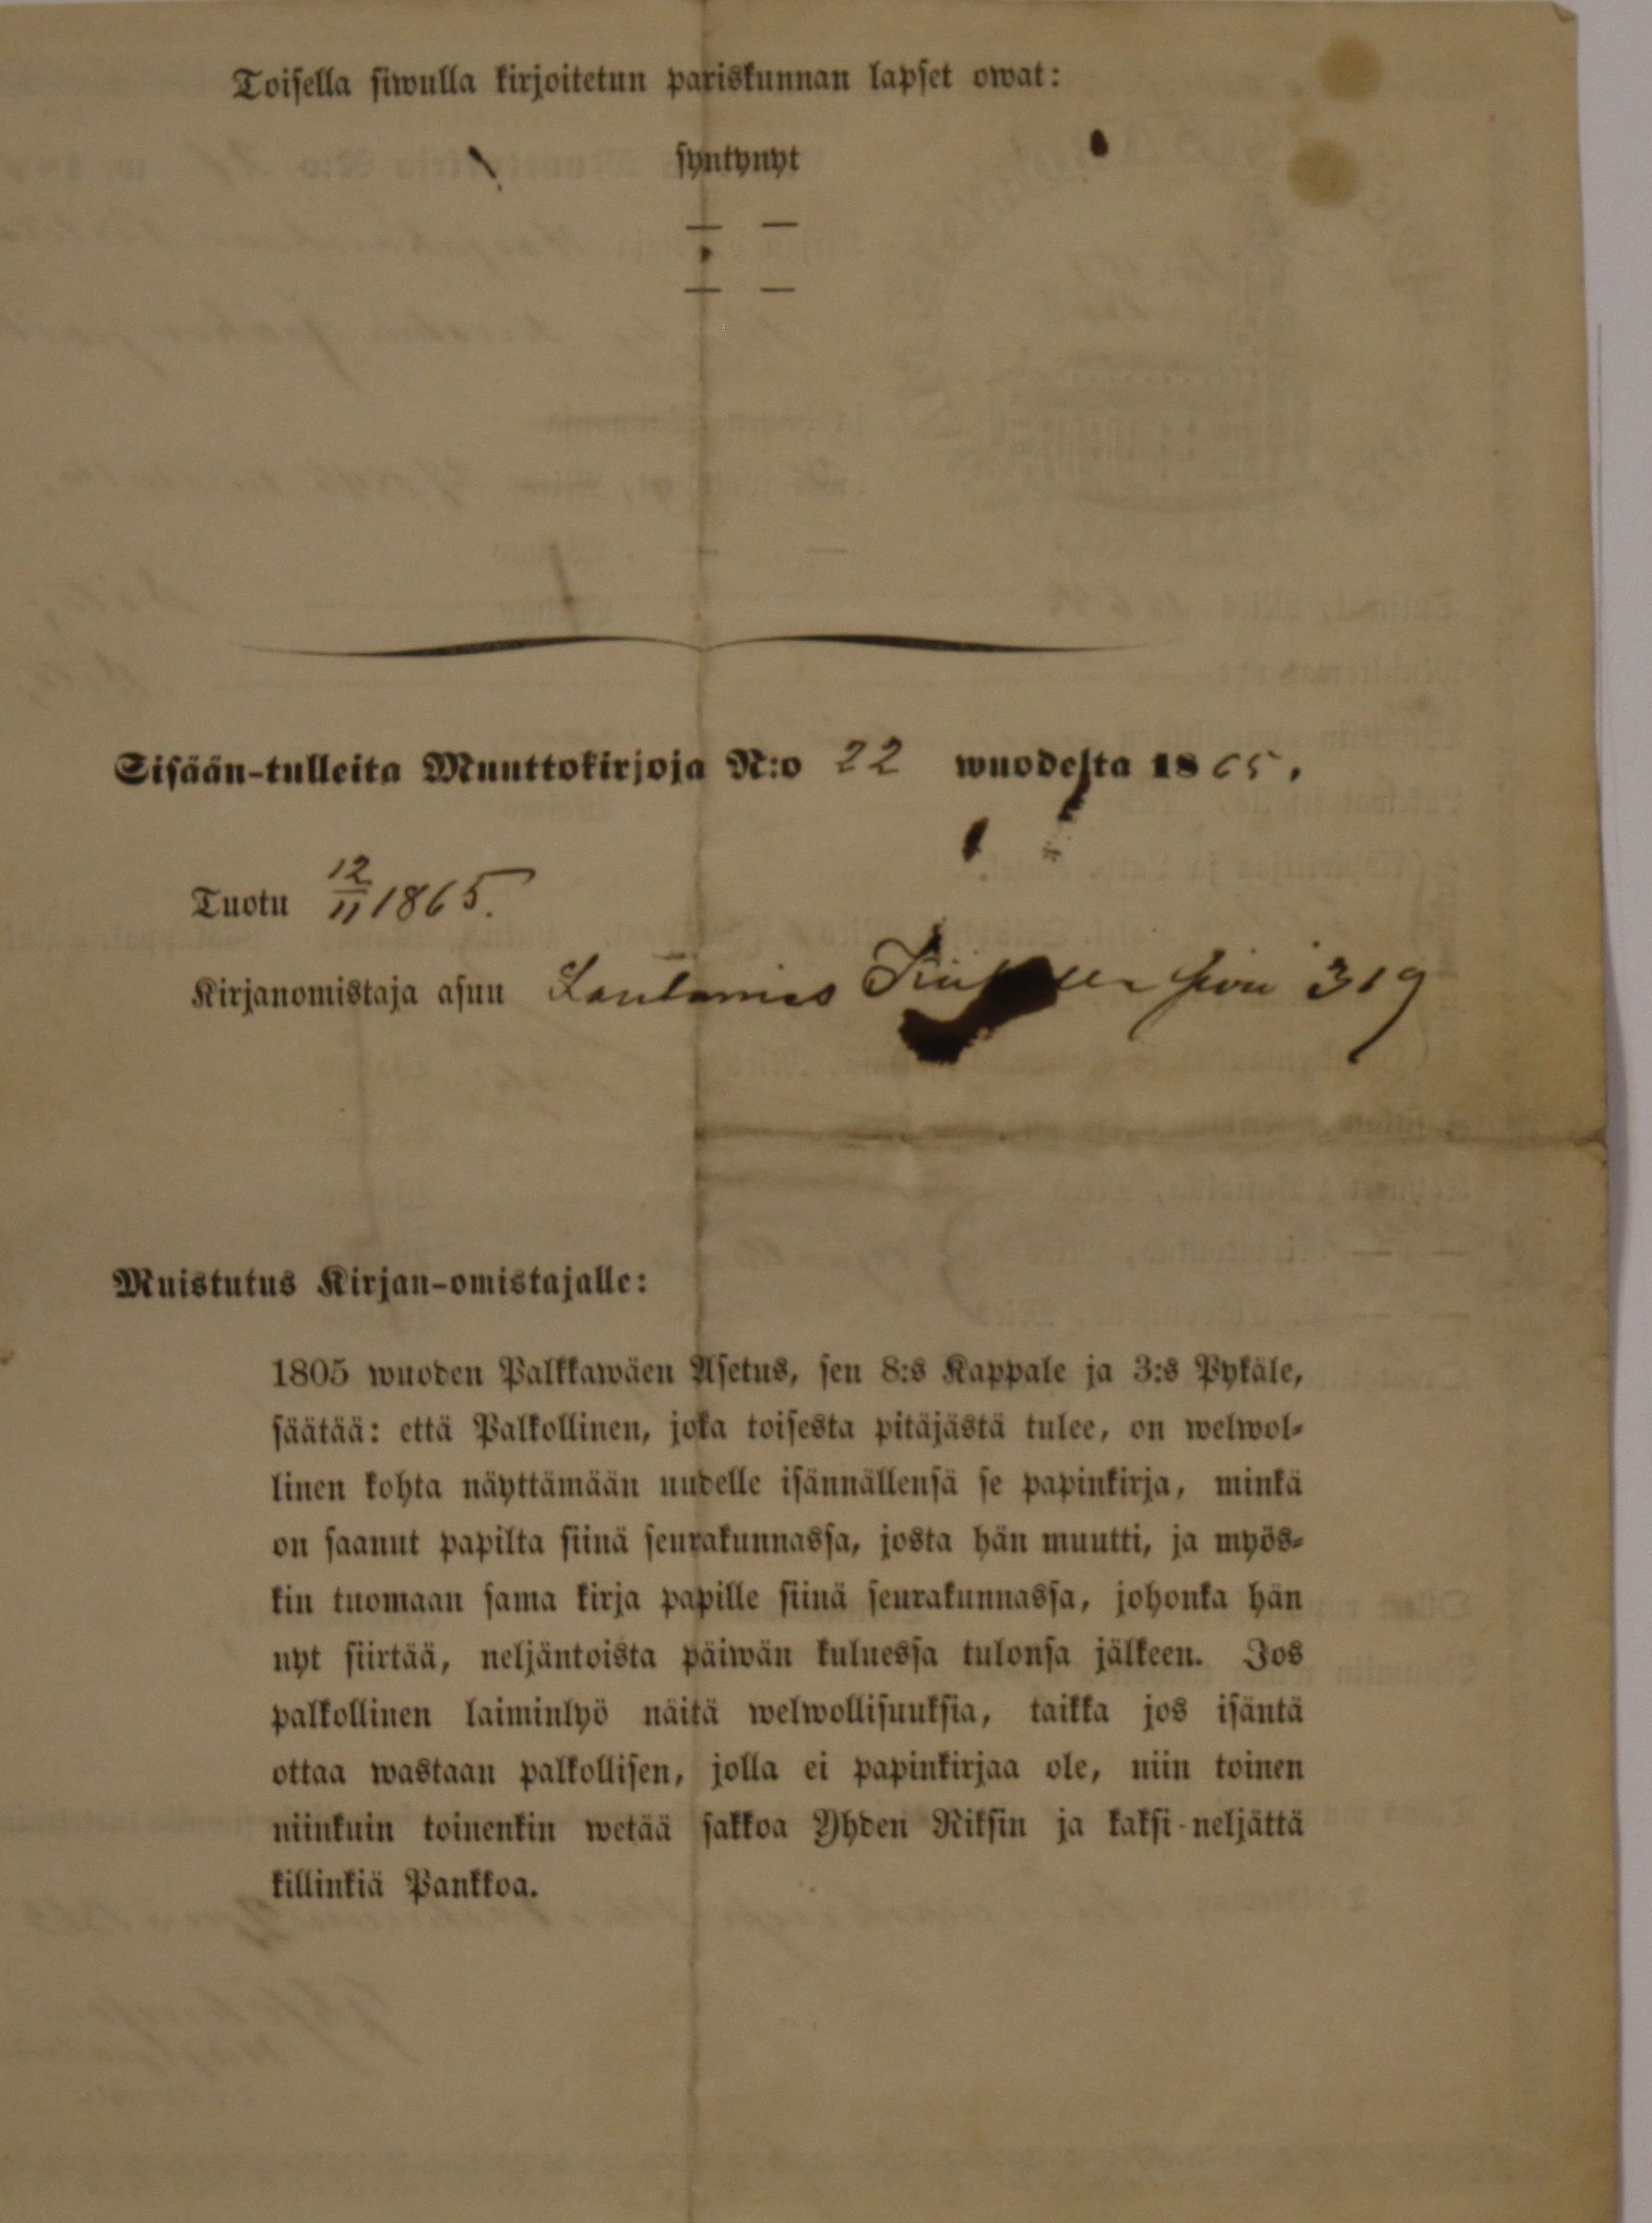 Toisella siwulla kirjoitetun pariskunnan lapset owat:
syntynyt
— —
— —
Sisään-tulleita Muuttokirjoja N:o 22 wuodesta 1865.
Tuotu 12/11 1865.
Kirjanomistaja asuu sivu 319
Muistutus Kirjan-omistajalle:
1805 wuoden Palkkawäen Asetus, sen 8:s Kappale ja 3:s Pykäle,
säätää: että Palkollinen, joka toisesta pitäjästä tulee, on welwol-
linen kohta näyttämään uudelle isännällensä se papinkirja, minkä
on saanut papilta siinä seurakunnassa, josta hän muutti, ja myös-
kin tuomaan sama kirja papille siinä seurakunnassa, johonka hän
nyt siirtää, neljäntoista päiwän kuluessa tulonsa jälkeen. Jos
palkollinen laiminlyö näitä welwollisuuksia, taikka jos isäntä
ottaa wastaan palkollisen, jolla ei papinkirjaa ole, niin toinen
niinkuin toinenkin wetää sakkoa Yhden Riksin ja kaksi-neljättä
killinkiä Pankkoa.